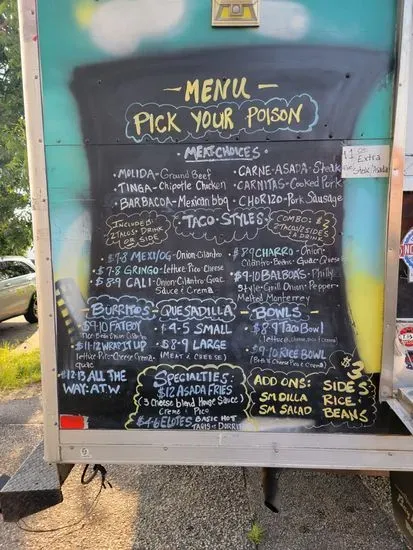 - MENU -
PICK YOUR POISON
MEAT CHOICES
MOLIDA - Ground Beef
TINGA - Chipotle Chicken
BARBACOA - Mexican bbq
CARNE-ASADA - Steak
CARNITAS - Cooked Pork
CHORIZO - Pork Sausage
Extra
Steak/Asada
INCLUDES
2 TACOS + DRINK
OR SIDE
TACO-STYLES
COMBO: $3
2 TACOS/2 SIDES
& DRINK
$7-8 MEXI/OG - Onion-Cilantro
$7-8 GRINGO - Lettuce Pico Cheese
$8-9 CALI - Onion-Cilantro Guac
Sauce & Crema
$8-9 CHARRO - Onion-
Cilantro-Beans-Guac-Cheese
$9-10 BALBOAS - Philly
Style-Grill Onion-Pepper-
Melted Monterrey
BURRITOS
$9-10 FATBOY
Rice Bean Onion Cilantro
$11-12 WRAPITUP
lettuce Pico Cheese Crema
guac
$12-13 ALL THE
WAY: A.T.W.
QUESADILLA
$4-5 SMALL
$8-9 LARGE
(MEAT & CHEESE)
BOWLS
$8-9 Taco Bowl
$9-10 RICE BOWL
SPECIALTIES:
$12 ASADA FRIES
3 Cheese blend House Sauce
Crema & Pico
$4-6 ELOTES BASIC HOT
TAKIS or DORRIT
ADD ONS:
SM DILLA
SM SALAD
$3
SIDES
RICE
BEANS